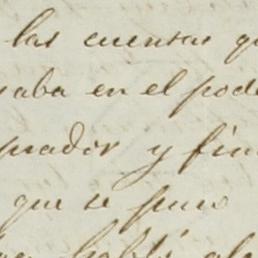 las cuentas q
aba en el pod
rador y fin
que se puso
habló al